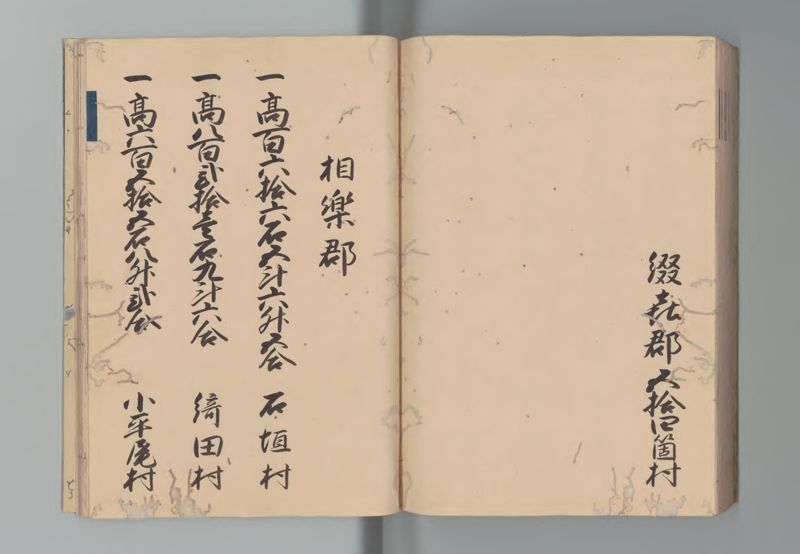 綴㐂郡五拾四箇村
相樂郡
一高百六拾六石五斗六升五合 石垣村
一高八百弐拾壱石九斗六合 綺田村
一高六百五拾五石八升弐合 小平尾村